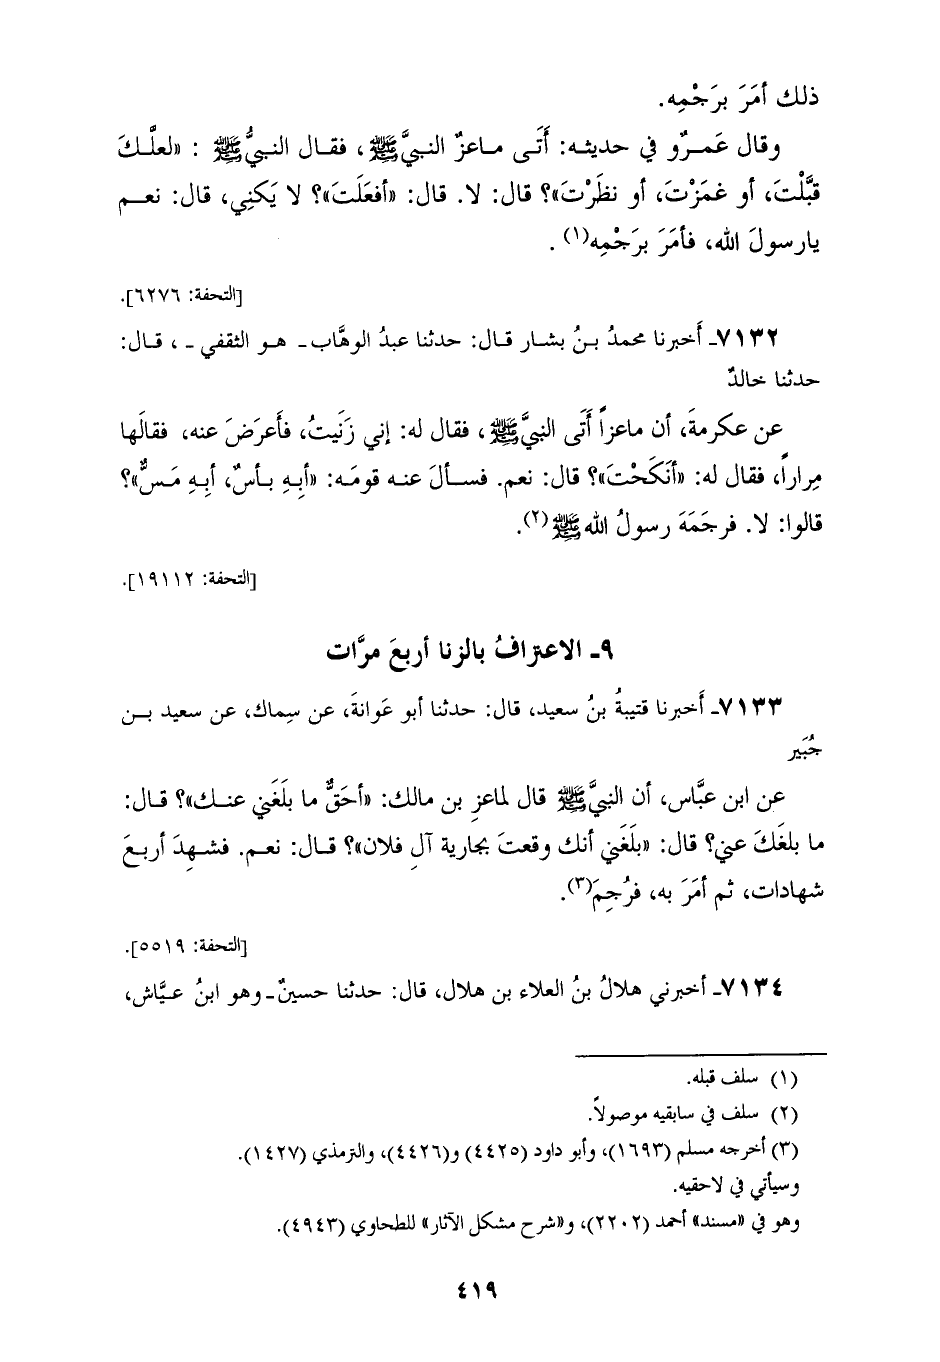 ذلك أمَرَ برَجْمِه.
وقال عَمـرٌو في حديثه: أَتَى ماعزٌ النبيَّ ﷺ، فقال النبيُّ ﷺ : «لعلَّـكَ
قبَّلْتَ، أو غمَزْتَ، أو نظَرْتَ»؟ قال: لا. قال: «أفعَلَتَ»؟ لا يَكنِي، قال: نعـم
يارسولَ الله، فأمَرَ برَجْمِه(١) .
[التحفة: ٦٢٧٦].
٧١٣٢ـ أَخبرنا محمدُ بنُ بشار قال: حدثنا عبدُ الوهَّاب ـ هو الثقفي ـ ، قال:
حدثنا خالدٌ
عن عكرمةَ، أن ماعزاً أَتَى النبيَّ ﷺ، فقال له: إني زَنَيتُ، فأَعرَضَ عنه، فقالَها
مِراراً، فقال له: «أَنَكَحْتَ»؟ قال: نعم. فسألَ عنه قومَه: «أَبِهِ بأسٌ، أَبِهِ مَسٌّ»؟
قالوا: لا. فرجَمَهَ رسولُ الله ﷺ(٢).
[التحفة: ١٩١١٢].
٩ـ الاعترافُ بالزنا أربعَ مرَّات
٧١٣٣ـ أَخبرنا قتيبةُ بنُ سعيد، قال: حدثنا أبو عَوانةَ، عن سِماك، عن سعيد بـن
جُبَير
عن ابن عبَّاس، أن النبيَّ ﷺ قال لماعزِ بن مالك: «أحَقٌّ ما بلَغَني عنـك»؟ قال:
ما بلغَكَ عني؟ قال: «بلَغَني أنك وقعتَ بجارية آلِ فلان»؟ قـال: نعـم. فشـهِدَ أربعَ
شهادات، ثم أمَرَ به، فرُجِمَ(٣).
[التحفة: ٥٥١٩].
٧١٣٤ـ أخبرني هلالُ بنُ العلاء بن هلال، قال: حدثنا حسينٌ ـ وهو ابنُ عيَّاش،
(١) سلف قبله.
(٢) سلف في سابقيه موصولاً.
(٣) أخرجه مسلم (١٦٩٣)، وأبو داود (٤٤٢٥) و(٤٤٢٦)، والترمذي (١٤٢٧).
وسيأتي في لاحقيه.
وهو في «مسند» أحمد (٢٢٠٢)، و«شرح مشكل الآثار» للطحاوي (٤٩٤٣).
٤١٩